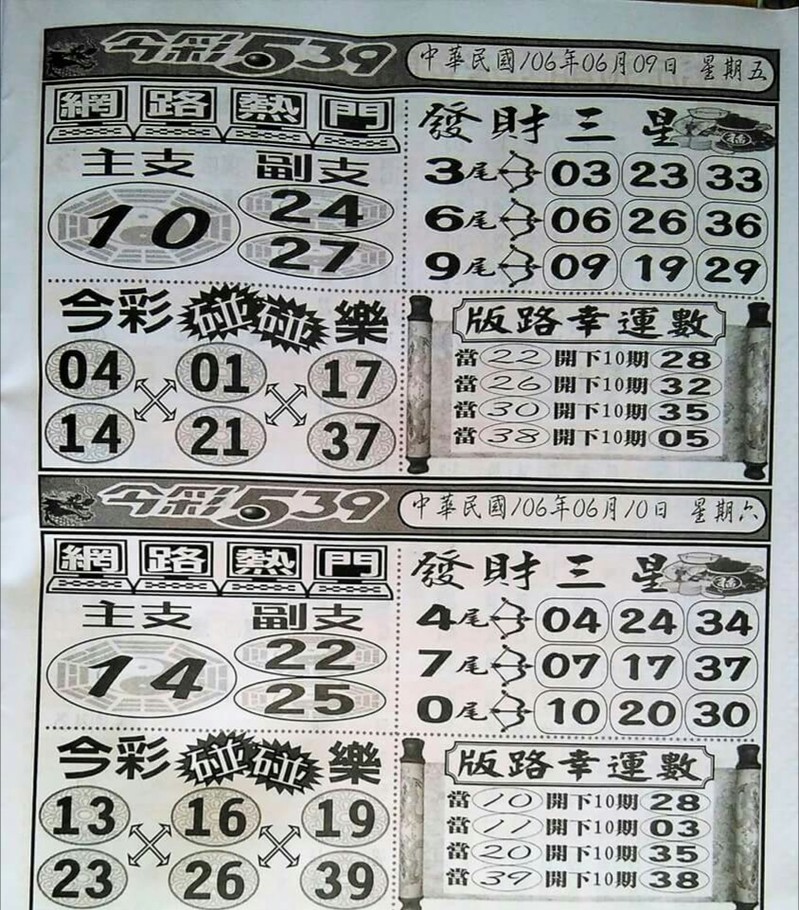 今彩539 中華民國106年06月09日 星期五
網路熱門
主支 副支
10 24
27
發財三星
3尾 03 23 33
6尾 06 26 36
9尾 09 19 29
今彩碰碰樂
04 01 17
14 21 37
版路幸運數
當22開下10期28
當26開下10期32
當30開下10期35
當38開下10期05
今彩539 中華民國106年06月10日 星期六
網路熱門
主支 副支
14 22
25
發財三星
4尾 04 24 34
7尾 07 17 37
0尾 10 20 30
今彩碰碰樂
13 16 19
23 26 39
版路幸運數
當10開下10期28
當11開下10期03
當20開下10期35
當39開下10期38